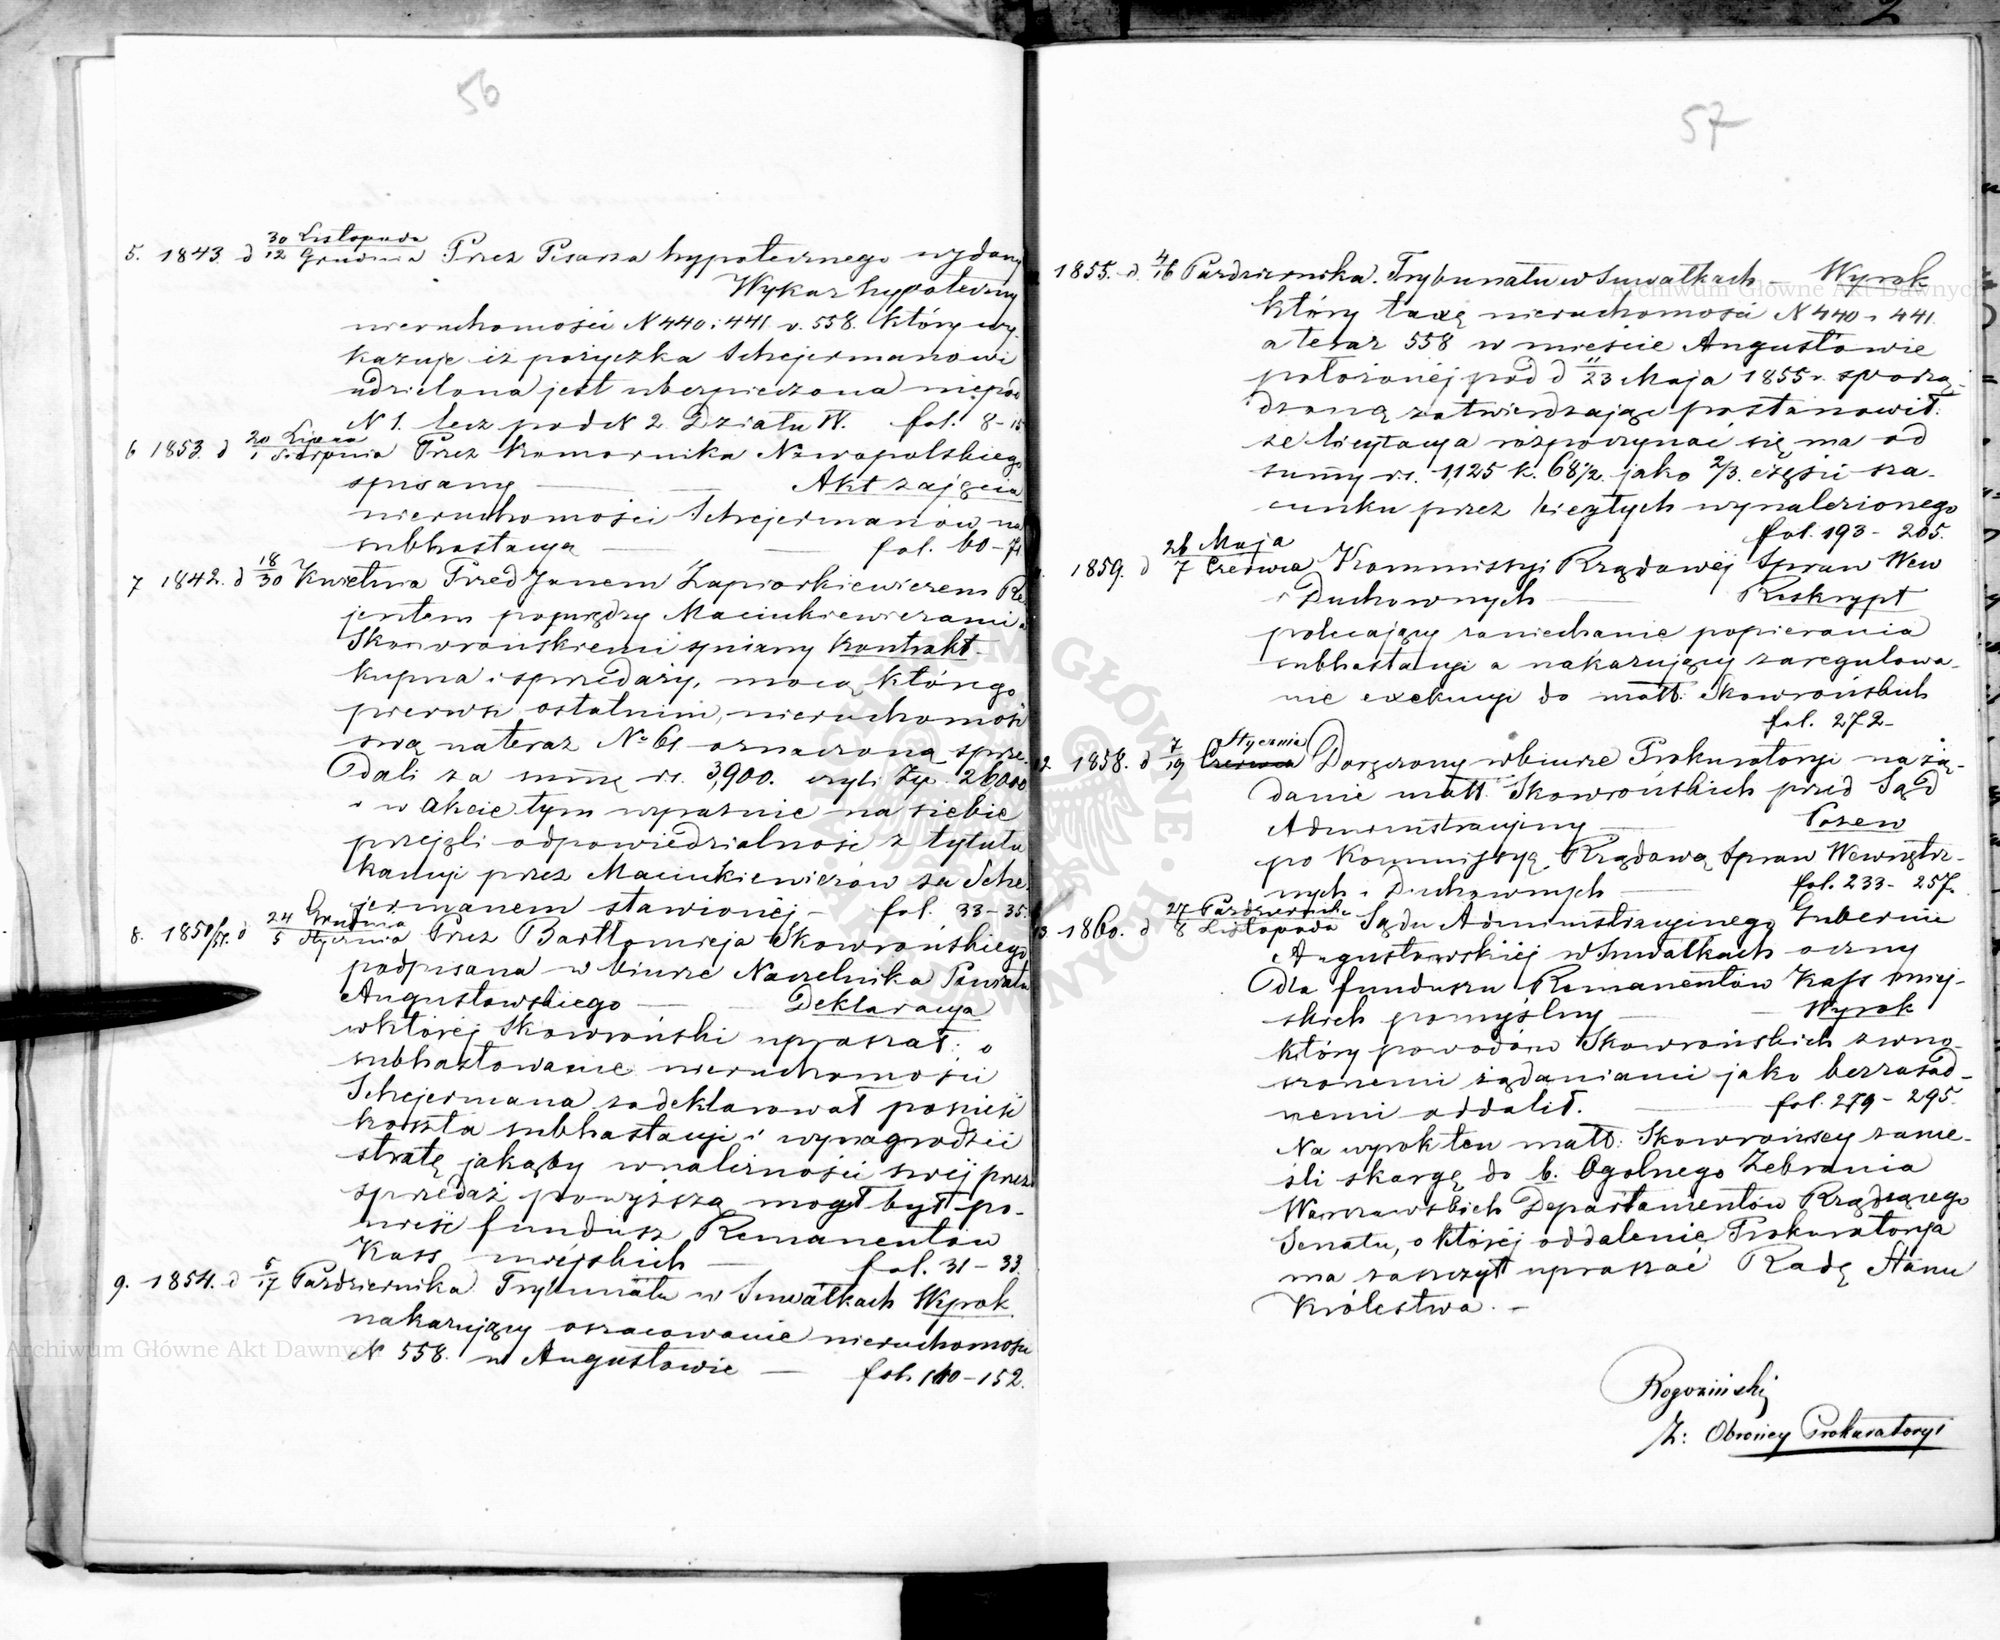 56
5. 1843. d 30 Listopada
12 Grudnia Przez Pisarza hypotecznego wydany
Wykaz hypoteczny
nieruchomości N 440 i 441 v. 558. który wy-
kazuje iż pożyczka Schejermanowi
udzielona jest ubezpieczona nie pod
N 1. lecz pod N 2 Działu IV. fol. 8-15
6 1853. d 20 Lipca
1 Sierpnia Przez Komornika Nowopolskiego
spisany — — Akt zajęcia
nieruchomości Schejermanów na
subhastacyą — — fol. 60-71
7 1842. d 18/30 Kwietnia Przed Janem Zapiorkiewiczem Re-
jentem pomiędzy Maciukiewiczami a
Skowrońskiemi spisany Kontrakt
kupna i sprzedaży, mocą którego
pierwsi ostatnim, nieruchomość
swą na teraz No 61 oznaczoną sprze-
dali za summę rs. 3,900. czyli Zp. 26000
i w akcie tym wyraźnie na siebie
przejęli odpowiedzialność z tytułu
kaucyi przez Maciukiewiczów za Sche-
jermanem stawionéj — fol. 33-35.
8. 1850/51. d 24 Grudnia
5 Stycznia Przez Bartłomieja Skowrońskiego
podpisana w biurze Naczelnika Powiatu
Augustowskiego — — Deklaracya
w któréj Skowroński upraszał: o
subhastowanie nieruchomości
Schejermana zadeklarował ponieść
koszta subhastacyi i wynagrodzić
stratę jakąby w należności swéj przez
sprzedaż powyższą mógł był po-
nieść fundusz Remanentów
Kass miejskich — fol. 31-33.
9. 1854. d 5/17 Października Trybunału w Suwałkach Wyrok
nakazujący oszacowanie nieruchomości
N 558. w Augustowie — fol. 140-152.
57
1855. d. 4/16 Października. Trybunału w Suwałkach — Wyrok
który taxę nieruchomości N 440 i 441.
a teraz 558 w mieście Augustowie
położonéj pod d 11/23 Maja 1855 r. sporzą-
dzoną zatwierdzając postanowił:
że licytacya rozpoczynać się ma od
summy rs. 1,125 k. 68 1/2. jako 2/3. części sza-
cunku przez biegłych wynalezionego
fol. 193- 205.
1859. d 26 Maja
7 Czerwca Kommissyi Rządowéj Spraw Wew
i Duchownych — Reskrypt
polecający zaniechanie popierania
subhastacyi a nakazujący zaregulowa-
nie exekucyi do małż. Skowrońskich
fol. 272-
12. 1858. d 7/19 Stycznia Czerwca Doręczony w biurze Prokuratoryi na żą-
danie małż. Skowrońskich przed Sąd
Administracyjny — Pozew
po Kommissyą Rządową Spraw Wewnętrz-
nych i Duchownych — fol. 233- 257.
13. 1860. d 27 Października
8 Listopada Sądu Administracyjnego Gubernii
Augustowskiéj w Suwałkach oczny
dla funduszu Remanentów Kass miej-
skich pomyślny — — Wyrok
który powodów Skowrońskich z wno-
szonemi żądaniami jako bezzasad-
nemi oddalił. — fol. 279- 295.
Na wyrok ten małż: Skowrońscy zanie-
śli skargę do b. Ogolnego Zebrania
Warszawskich Departamentów Rządzącego
Senatu, o któréj oddalenie Prokuratorya
ma zaszczyt upraszać Radę Stanu
Królestwa. —
Rogoziński
Z: Obrońcy Prokuratoryi
Archiwum Główne Akt Dawnych
Archiwum Główne Akt Dawnych